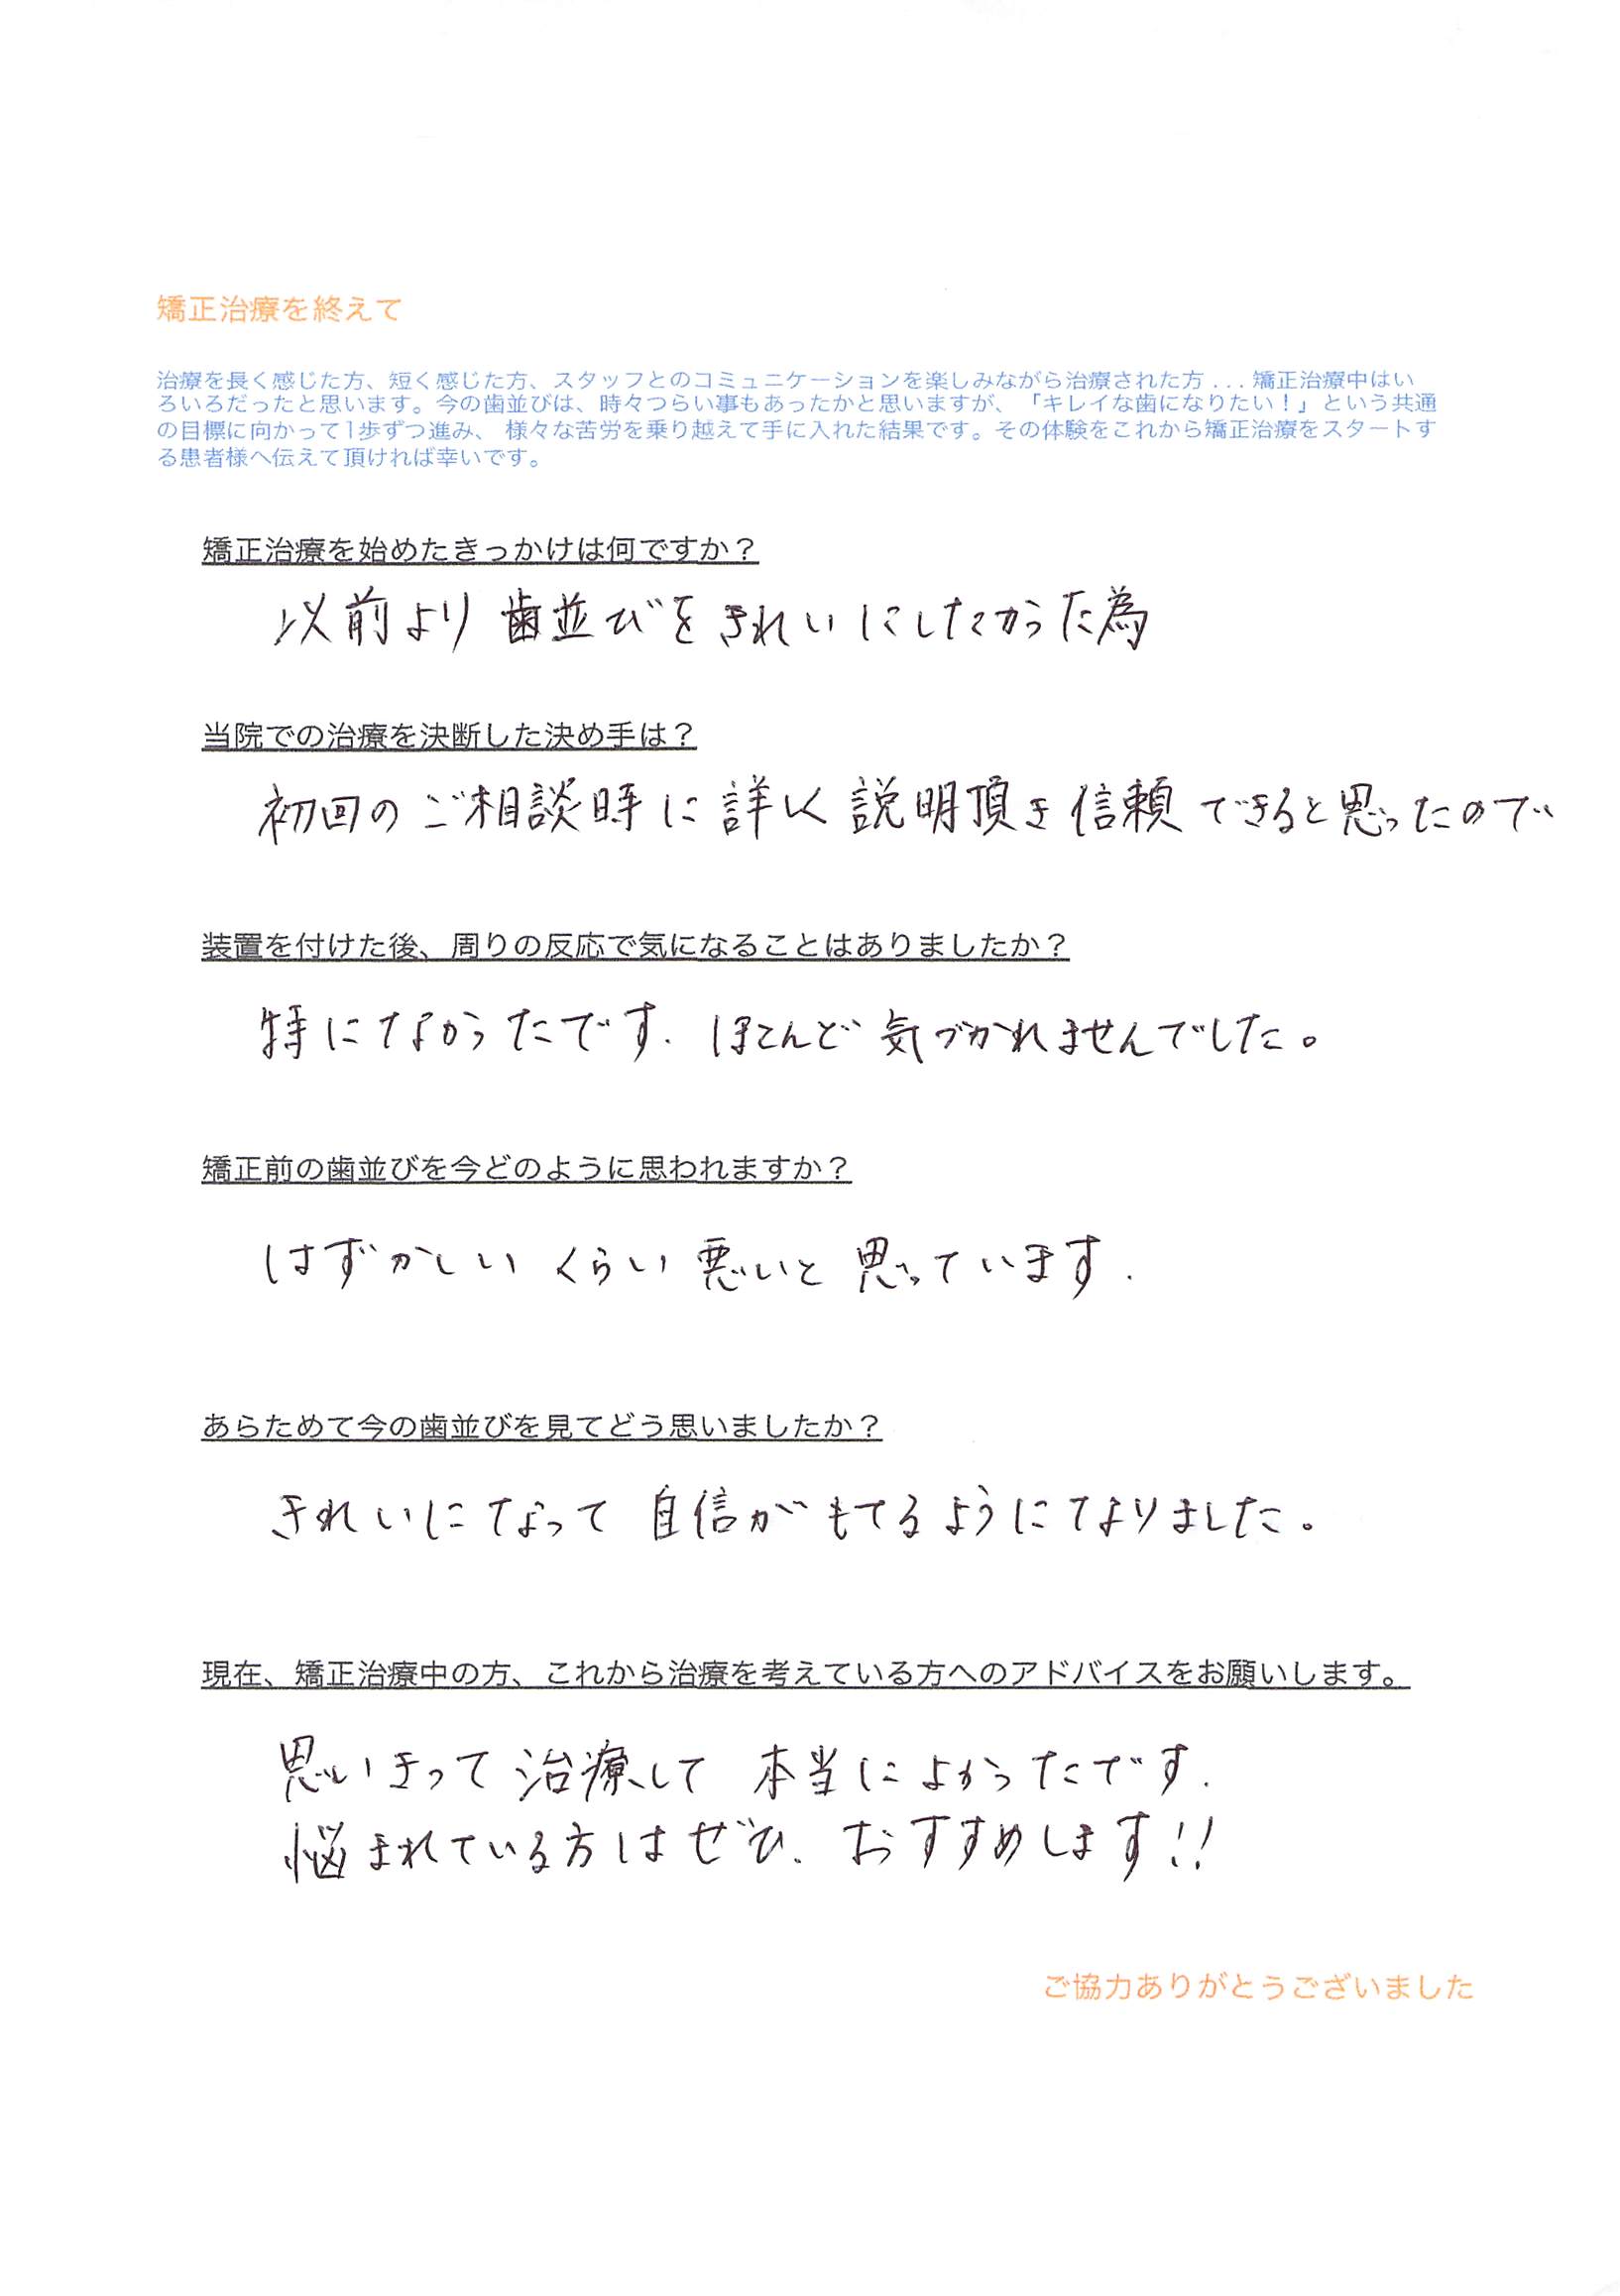 矯正治療を終えて
治療を長く感じた方、短く感じた方、スタッフとのコミュニケーションを楽しみながら治療された方...矯正治療中はい
ろいろだったと思います。今の歯並びは、時々つらい事もあったかと思いますが、「キレイな歯になりたい！」という共通
の目標に向かって1歩ずつ進み、様々な苦労を乗り越えて手に入れた結果です。その体験をこれから矯正治療をスタートす
る患者様へ伝えて頂ければ幸いです。
矯正治療を始めたきっかけは何ですか？
以前より歯並びをきれいにしたかった為
当院での治療を決断した決め手は？
初回のご相談時に詳しく説明頂き信頼できると思ったので
装置を付けた後、周りの反応で気になることはありましたか？
特になかったです. ほとんど気づかれませんでした。
矯正前の歯並びを今どのように思われますか？
はずかしいくらい悪いと思っています.
あらためて今の歯並びを見てどう思いましたか？
きれいになって自信がもてるようになりました。
現在、矯正治療中の方、これから治療を考えている方へのアドバイスをお願いします。
思いきって治療して本当によかったです.
悩まれている方はぜひ. おすすめします!!
ご協力ありがとうございました